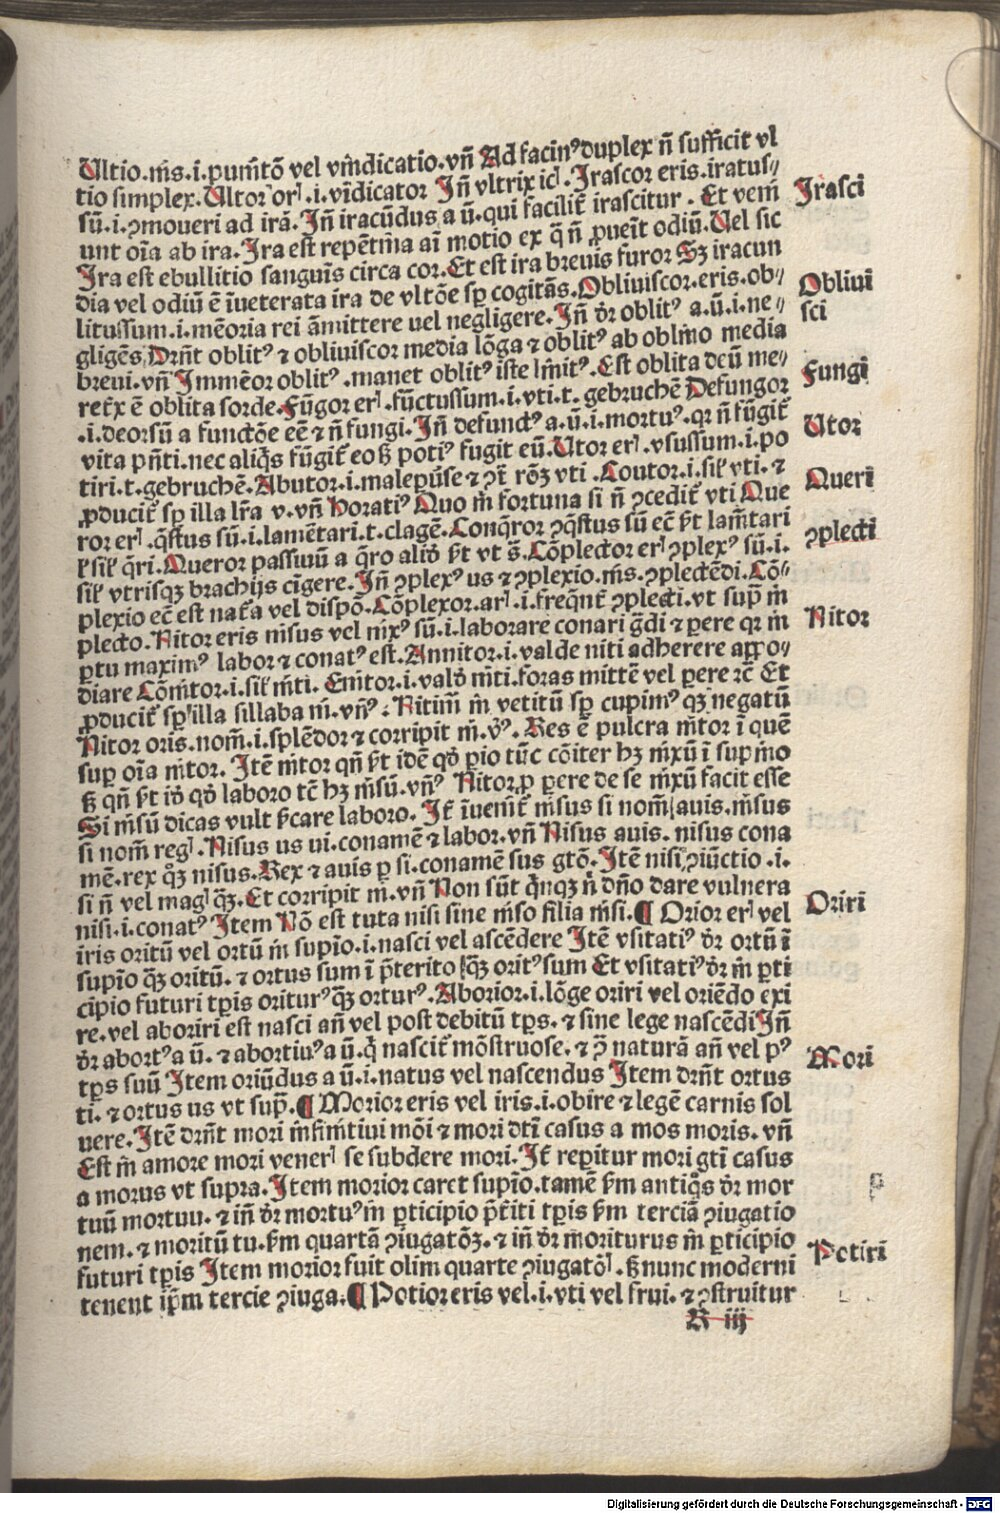 Ultio.nis.i.punitō vel vindicatio.vñ Ad facinꝰ duplex ñ sufficit vl
tio simplex. Ultor orꝭ.i.vīdicator Iñ vltrix icꝭ. Irascor eris.iratus⸗
Irasci
sū.i.ꝯmoueri ad irā. Iñ iracūdus a ū.qui facilit̄ irascitur. Et veni
unt oīa ab ira. Ira est repētina aī motio ex q̄ ñ ꝓueīt odiū. Uel sic
Ira est ebullitio sanguīs circa cor. Et est ira breuis furor Sꝫ iracun
dia vel odiū ē īueterata ira de vltōe sꝑ cogitās. Obliuiscor.eris.ob⸗
Obliui
sci
litussum.i.mēoria rei āmittere uel negligere. Iñ dr̄ oblitꝰ a.ū.i.ne⸗
gligēs. Drn̄t oblitꝰ ⁊ obliuiscor media lōga ⁊ oblitꝰ ab oblino media
breui.vñ Immēor oblitꝰ.manet oblitꝰ iste linitꝰ. Est oblita deū me⸗
Fungi
ret̄x ē oblita sorde. Fūgor erꝭ.fūctussum.i.vti.t.gebruchē Defungor
.i.deorsū a functōe eē ⁊ ñ fungi. Iñ defunctꝰ a.ū.i.mortuꝰ.qr ñ fūgit̄
Utor
vita pn̄ti.nec aliq̄s fūgit̄ eo sꝫ potiꝰ fugit eū. Utor erꝭ.vsussum.i.po
tiri.t.gebruchē. Abutor.i.male ꝑuse ⁊ ꝯt̄ rōꝫ vti. Coutor.i.sil̄ vti.⁊
Queri
ꝓducit̄ sꝑ illa lr̄a v.vñ Horatiꝰ Quo m̄ fortuna si ñ ꝯcedit̄ vti Que
ror erꝭ.q̄stus sū.i.lamētari.t.clagē. Conq̄ror ꝯq̄stus sū ec̄ ẜt lam̄tari
ꝯplecti
ꝉ sil̄ q̄ri. Queror passiuū a q̄ro aliđ ẜt vt s̄. Cōplector erꝭ ꝯplexꝰ sū.i.
sil̄ vtrisqꝫ brachijs cīgere. Iñ ꝯplexꝰ us ⁊ ꝯplexio.nis.ꝯplectēdi. Cō⸗
plexio ec̄ est nat̄a vel dispō. Cōplexor.arꝭ.i.freq̄nt̄ ꝯplecti.vt sup̄ in
Nitor
plecto. Nitor eris nisus vel nixꝰ sū.i.laborare conari ḡdi ⁊ ꝑere qr in
ꝑtu maximꝰ labor ⁊ conatꝰ est. Annitor.i.valde niti adherere appo⸗
diare Cōnitor.i.sil̄ niti. Enitor.i.valđ niti.foras mittē vel ꝑere ⁊c̄ Et
ꝓducit̄ sꝑ illa sillaba ni.vñꝰ. Nitimꝰ in vetitū sꝑ cupimꝰqꝫ negatū
Nitor oris.nom̄.i.splēdor ⁊ corripit ni.v̉ꝰ. Res ē pulcra nitor ī quē
sup oīa nitor. Itē nitor qñ ẜt idē qđ ꝑio tūc cōiter hꝫ nixū ī supino
sꝫ qñ ẜt iđ qđ laboro tc̄ hꝫ nisū.vñꝰ Nitor ꝓ ꝑere de se nixū facit esse
Si nisū dicas vult ẜcare laboro. It̄ īuenit̄ nisus si nom̄ auis.nisus
si nom̄ regꝭ. Nisus us ui.conamē ⁊ labor.vñ Nisus auis.nisus cona
mē.rex qͦꝫ nisus. Rex ⁊ auis ꝑ si.conamē sus gtō. Itē nisi ꝯiūctio.i.
si ñ vel magꝭ q̄ꝫ. Et corripit ni.vñ Non sūt q̄nqꝫ ni dn̄o dare vulnera
nisi.i.conatꝰ Item Nō est tuta nisi sine niso filia nisi.¶ Orior erꝭ vel
Oriri
iris oritū vel ortū in supīo.i.nasci vel ascēdere Itē vsitatiꝰ dr̄ ortū ī
supīo q̄ꝫ oritū.⁊ ortus sum ī p̄terito q̄ꝫ oritꝰsum Et vsitatiꝰ dr̄ in ꝑti
cipio futuri tꝑis oriturꝰ q̄ꝫ orturꝰ. Aborior.i.lōge oriri vel oriēdo exi
re.vel aboriri est nasci añ vel post debitū tꝑs.⁊ sine lege nascēdi Iñ
dr̄ abortꝰa ū.⁊ abortiuꝰa ū.q̄ nascit̄ mōstruose.⁊ ꝯ̄ naturā añ vel pꝰ
Mori
tꝑs suū Item oriūdus a ū.i.natus vel nascendus Item drn̄t ortus
ti.⁊ ortus us vt sup̄.¶ Morior eris vel iris.i.obire ⁊ legē carnis sol
uere. Itē drn̄t mori infinitiui mōi ⁊ mori dtī casus a mos moris.vñ
Est in amore mori venerꝭ se subdere mori. It̄ reꝑitur mori gtī casus
a morus vt supra. Item morior caret supīo.tamē ẜm antiq̄s dr̄ mor
tuū mortuu.⁊ iñ dr̄ mortuꝰ in ꝑticipio p̄t̄iti tꝑis ẜm terciā ꝯiugatio
nem.⁊ moritū tu.ẜm quartā ꝯiugatōꝫ.⁊ iñ dr̄ moriturus in ꝑticipio
Potiri
futuri tꝑis Item morior fuit olim quarte ꝯiugatōꝭ.sꝫ nunc moderni
tenent ip̄m tercie ꝯiuga.¶ Potior eris vel.i.vti vel frui.⁊ ꝯstruitur
R iij
Digitalisierung gefördert durch die Deutsche Forschungsgemeinschaft - DFG